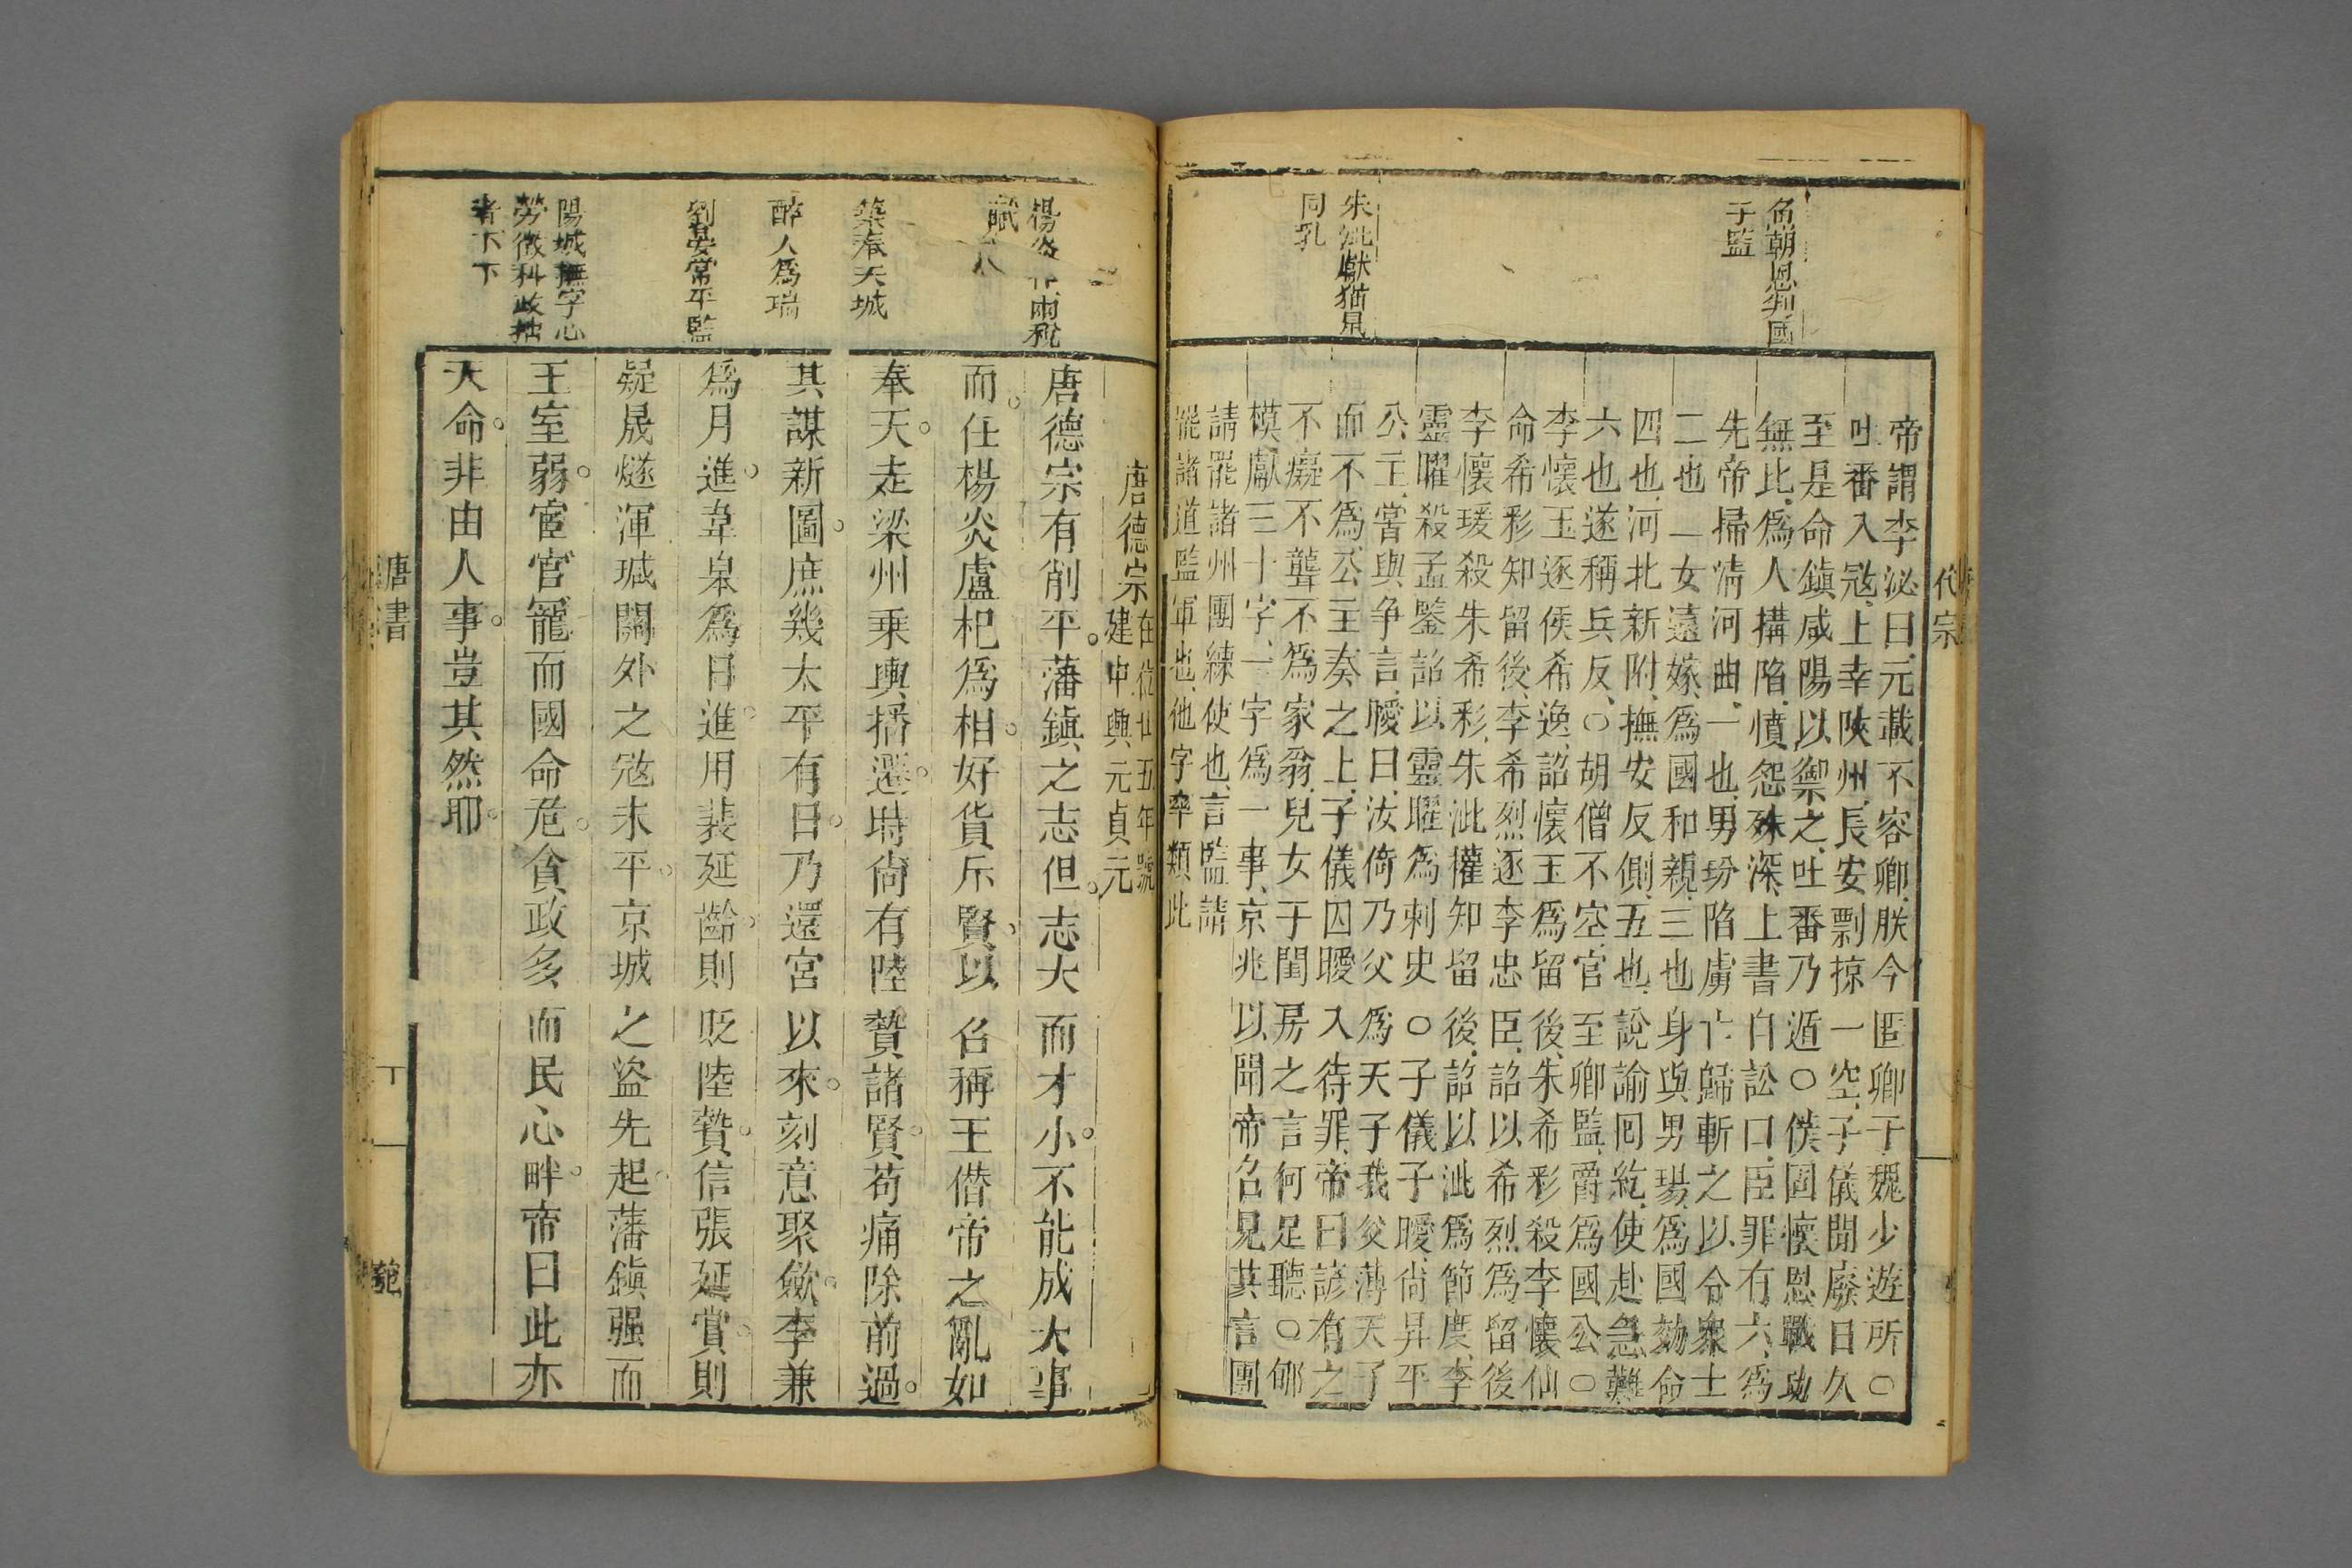 代宗
魚朝恩判國
子監
朱泚獻猫鼠
同乳
帝謂李泌曰元載不容卿朕今匿卿于魏少遊所〇
吐番入冦上幸陜州長安剽掠一空子儀聞廢日久
至是命鎮咸陽以禦之吐番乃遁〇僕固懷恩戰功
無比爲人搆陷憤怨殊深上書自訟曰臣罪有六爲
先帝掃清河曲一也男玢陷虜亡歸斬之以令衆士
二也一女遠嫁爲國和親三也身與男瑒爲國効命
四也河北新附撫安反側五也說諭囘紇使赴急難
六也遂稱兵反〇胡僧不空官至卿監爵爲國公〇
李懷玉逐侯希逸詔懷玉爲留後朱希彩殺李懷仙
命希彩知留後李希烈逐李忠臣詔以希烈爲留後
李懷瑗殺朱希彩朱泚權知留後詔以泚爲節度李
靈曜殺孟鑒詔以靈曜爲刺史〇子儀子曖尚昇平
公主嘗與争言曖曰汝倚乃父爲天子我父薄天子
而不爲公主奏之上子儀囚曖入待罪帝曰諺有之
不癡不聾不爲家翁兒女子閨房之言何足聽〇郇
模獻三十字一字爲一事京兆以聞帝召見其言團
請罷諸州團練使也言監請
罷諸道監軍也他字率類此
楊炎作兩稅
賦
築奉天城
醉人爲瑞
劉晏常平監
陽城撫字心
勞徵科政拙
者下下
唐德宗在位廿五年號
建中興元貞元
唐德宗有削平藩鎮之志但志大而才小不能成大事
而任楊炎盧杞爲相好貨斥賢以召稱王僭帝之亂如
奉天走梁州乗輿播遷時尚有陸贄諸賢苟痛除前過
其謀新圖庶幾太平有日乃還宮以來刻意聚斂李兼
爲月進韋臯爲日進用裴延齡則貶陸贄信張延賞則
疑晟燧渾瑊關外之冦未平京城之盜先起藩鎮强而
王室弱宦官寵而國命危貪政多而民心畔帝曰此亦
天命非由人事豈其然耶
唐書